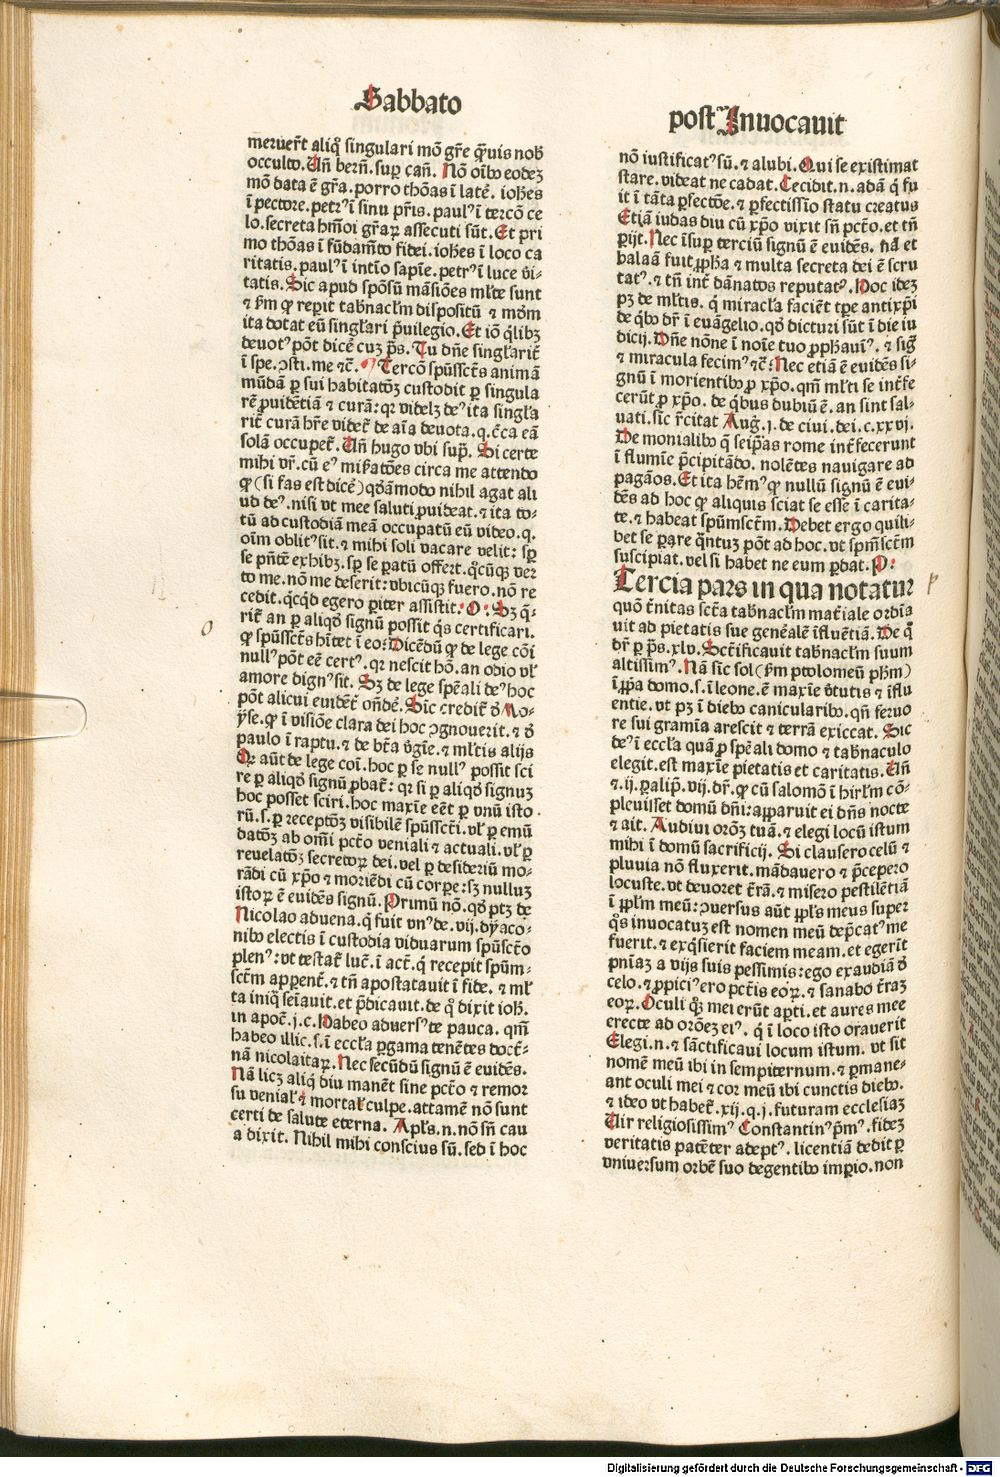 Sabbato
meruer̄t aliq̊ singulari mō gr̄e q̄uis nob̄
occulto. Uñ bern̄. sup̲ cañ. Nō oībꝰ eodeꝫ
mō data ē gr̄a. porro thōas ī late᷑. ioh̄es
ī pectore. petrꝰ ī sinu pr̄is. paulꝰ ī tercō ce
lo. secreta hm̄oi gr̄aꝝ assecuti sūt. Et pri
mo thōas ī fūdam̄to fidei. ioh̄es ī loco ca
ritatis. paulꝰ ī intīo sapīe. petrꝰ ī luce v̄i-
tatis. Sic apud spōsū māsiōes ml̄te sunt
⁊ ẜm ꝙ reꝑit tab̄nacl̄m dispositū ⁊ mōm
ita dotat eū singl̄ari p̄uilegio. Et iō q̄libꝫ
deuotꝰ pōt dicē cuꝫ p̄s. Tu dñe singl̄arit᷑
ī spe. ↄsti. me ⁊c̄. Tercō spūssct̄s animā
mūdā ꝑ sui habitatōꝫ custodit ꝑ singula
rē ꝓuidētiā ⁊ curā: qꝛ videlꝫ deꝰ ita singl̄a
rit᷑ curā hr̄e videt᷑ de aīa deuota. q. c̄ca eā
solā occupet᷑. Uñ hugo vbi sup̄. Si certe
mihi vr̄. cū eꝰ mis̄atōes circa me attendo
ꝙ (si fas est dicē) qđāmodo nihil agat ali
ud deꝰ. nisi vt mee saluti ꝓuideat. ⁊ ita to-
tū ad custodiā meā occupatū eū video. q.
oīm oblitꝰ sit. ⁊ mihi soli vacare velit: sp̲
se pn̄tē exhibꝫ. sp̲ se patū offert. q̊cūqꝫ ver
to me. nō me deserit: vbicūqꝫ fuero. nō re
cedit. qcqđ egero ꝑiter assistit. O: Sꝫ q̄-
rit᷑ an ꝑ aliqđ signū possit q̇s certificari.
ꝙ spūssct̄s hītet ī eo: Dicēdū ꝙ de lege cōi
nullꝰ pōt eē certꝰ. qꝛ nescit hō. an odio vl̄
amore dignꝰ sit. Sꝫ de lege spēali deꝰ hoc
pōt alicui euidēt᷑ oñdē. Sic credit᷑ đ Mo-
yse. ꝙ ī visiōe clara dei hoc ↄgnouerit. ⁊ đ
paulo ī raptu. ⁊ de bt̄a v̄gīe. ⁊ ml̄tis alijs
Qꝛ aūt de lege coī. hoc ꝑ se nullꝰ possit sci
re ꝑ aliqđ signū ꝓbat᷑: qꝛ si ꝑ aliqđ signuꝫ
hoc posset sciri. hoc maxīe eēt ꝑ vnū isto
rū. s. ꝑ receptōꝫ visibilē spūssct̄i. vl̄ ꝑ emū
datōꝫ ab omī pct̄o veniali ⁊ actuali. vl̄ ꝑ
reuelatōꝫ secretoꝝ dei. vel ꝑ desideriū mo-
rādi cū xp̄o ⁊ moriēdi cū corꝑe: sꝫ nulluꝫ
istoꝝ ē euidēs signū. Primū nō. qđ ptꝫ de
Nicolao aduena. q̇ fuit vnꝰ de. vij. dyaco-
nibꝰ electis ī custodia viduarum spūsct̄o
plenꝰ: vt testat᷑ luc̄. ī act᷑. q̇ recepit spūm-
sct̄m apparent᷑. ⁊ tñ apostatauit ī fide. ⁊ ml̄
ta iniq̄ seīauit. et p̄dicauit. de q̊ dixit ioh̄.
in apoc̄. j. c. Habeo aduersꝰ te pauca. qm̄
habeo illic. s. ī eccl̄a ꝑgama tenētes doct᷑-
nā nicolaitaꝝ. Nec secūdū signū ē euidēs.
Nā licꝫ aliq̇ diu manēt sine pct̄o ⁊ remor
su venial᷑ ⁊ mortal᷑ culpe. attamē nō sunt
certi de salute eterna. Apl̄s. n. nō sñ cau
a dixit. Nihil mihi conscius sū. sed ī hoc
post Inuocauit
nō iustificatꝰ sū. ⁊ alubi. Qui se existimat
stare. videat ne cadat. Cecidit. n. adā q̇ fu
it ī tāta ꝑsectōe. ⁊ ꝑfectissīo statu creatus
Etiā iudas diu cū xp̄o vixit sñ pct̄o. et tñ
ꝑijt. Nec īsuꝑ terciū signū ē euidēs. nā et
balaā fuit ꝓph̄a ⁊ multa secreta dei ē scru
tatꝰ. ⁊ tñ int᷑ dānatos reputatꝰ. Hoc ideꝫ
pꝫ de ml̄tis. q̇ miracl̄a faciēt tꝑe antixp̄i
de q̇bꝰ dr̄ ī euāgelio. qđ dicturi sūt ī die iu
dicij. Dñe nōne ī noīe tuo ꝓph̄auīꝰ. ⁊ sig᷑
⁊ miracula fecimꝰ ⁊c̄: Nec etiā ē euidēs si-
gnū ī morientibꝰ ꝓ xp̄o. qm̄ ml̄ti se int᷑fe
cerūt ꝓ xp̄o. de q̇bus dubiū ē. an sint sal-
uati. sic r̄citat Aug᷑. j. de ciui. dei. c. xxvj.
De monialibꝰ q̄ seip̄as rome int᷑fecerunt
ī flumīe p̄cipitādo. nolētes nauigare ad
pagāos. Et ita hēmꝰ ꝙ nullū signū ē eui-
dēs ad hoc ꝙ aliquis sciat se esse ī carita-
te. ⁊ habeat spūmsct̄m. Debet ergo quili-
bet se ꝑare q̄ntuꝫ pōt ad hoc. vt spm̄sct̄m
suscipiat. vel si habet ne eum ꝑdat. P:
Tercia pars in qua notatur
quō t᷑nitas sct̄a tab̄nacl̄m mat᷑iale ordīa
uit ad pietatis sue genēalē īfluētiā. De q̊
dr̄ ꝑ p̄s. xlv. Sct̄ificauit tab̄nacl̄m suum
altissimꝰ. Nā sic sol (ẜm ptolomeū ph̄m)
ī ꝓp̄a domo. s. ī leone. ē maxīe v̄tutis ⁊ īflu
entie. vt pꝫ ī diebꝰ canicularibꝰ. qñ feruo
re sui gramīa arescit ⁊ terrā exiccat. Sic
deꝰ ī eccl̄a quā ꝓ spēali domo ⁊ tab̄naculo
elegit. est maxīe pietatis et caritatis. Uñ
⁊. ij. ꝑalip̄. vij. dr̄. ꝙ cū salomō ī hirl̄m cō-
pleuisset domū dñi: apparuit ei dñs nocte
⁊ ait. Audiui orōꝫ tuā. ⁊ elegi locū istum
mihi ī domū sacrificij. Si clausero celū ⁊
pluuia nō fluxerit. mādauero ⁊ p̄cepero
locuste. vt deuoret t᷑rā. ⁊ misero pestilētiā
ī ppl̄m meū: ↄuersus aūt ppl̄s meus super
q̊s inuocatuꝫ est nomen meū dep̄catꝰ me
fuerit. ⁊ exq̇sierit faciem meam. et egerit
pnīaꝫ a vijs suis pessimis: ego exaudiā đ
celo. ⁊ ꝓpiciꝰ ero pct̄is eoꝝ. ⁊ sanabo t᷑raꝫ
eoꝝ. Oculi qꝫ mei erūt aꝑti. et aures mee
erecte ad orōeꝫ eiꝰ. q̇ ī loco isto orauerit
Elegi. n. ⁊ sāctificaui locum istum. vt sit
nomē meū ibi in sempiternum. ⁊ ꝑmane-
ant oculi mei ⁊ cor meū ibi cunctis diebꝰ.
⁊ ideo vt habet᷑. xij. q. j. futuram ecclesiaꝫ
Uir religiosissimꝰ Constantinꝰ p̄mꝰ. fideꝫ
veritatis patēter adeptꝰ. licentiā dedit ꝑ
vniuersum orbē suo degentibꝰ imꝑio. non
o
p
Digitalisierung gefördert durch die Deutsche Forschungsgemeinschaft - DFG